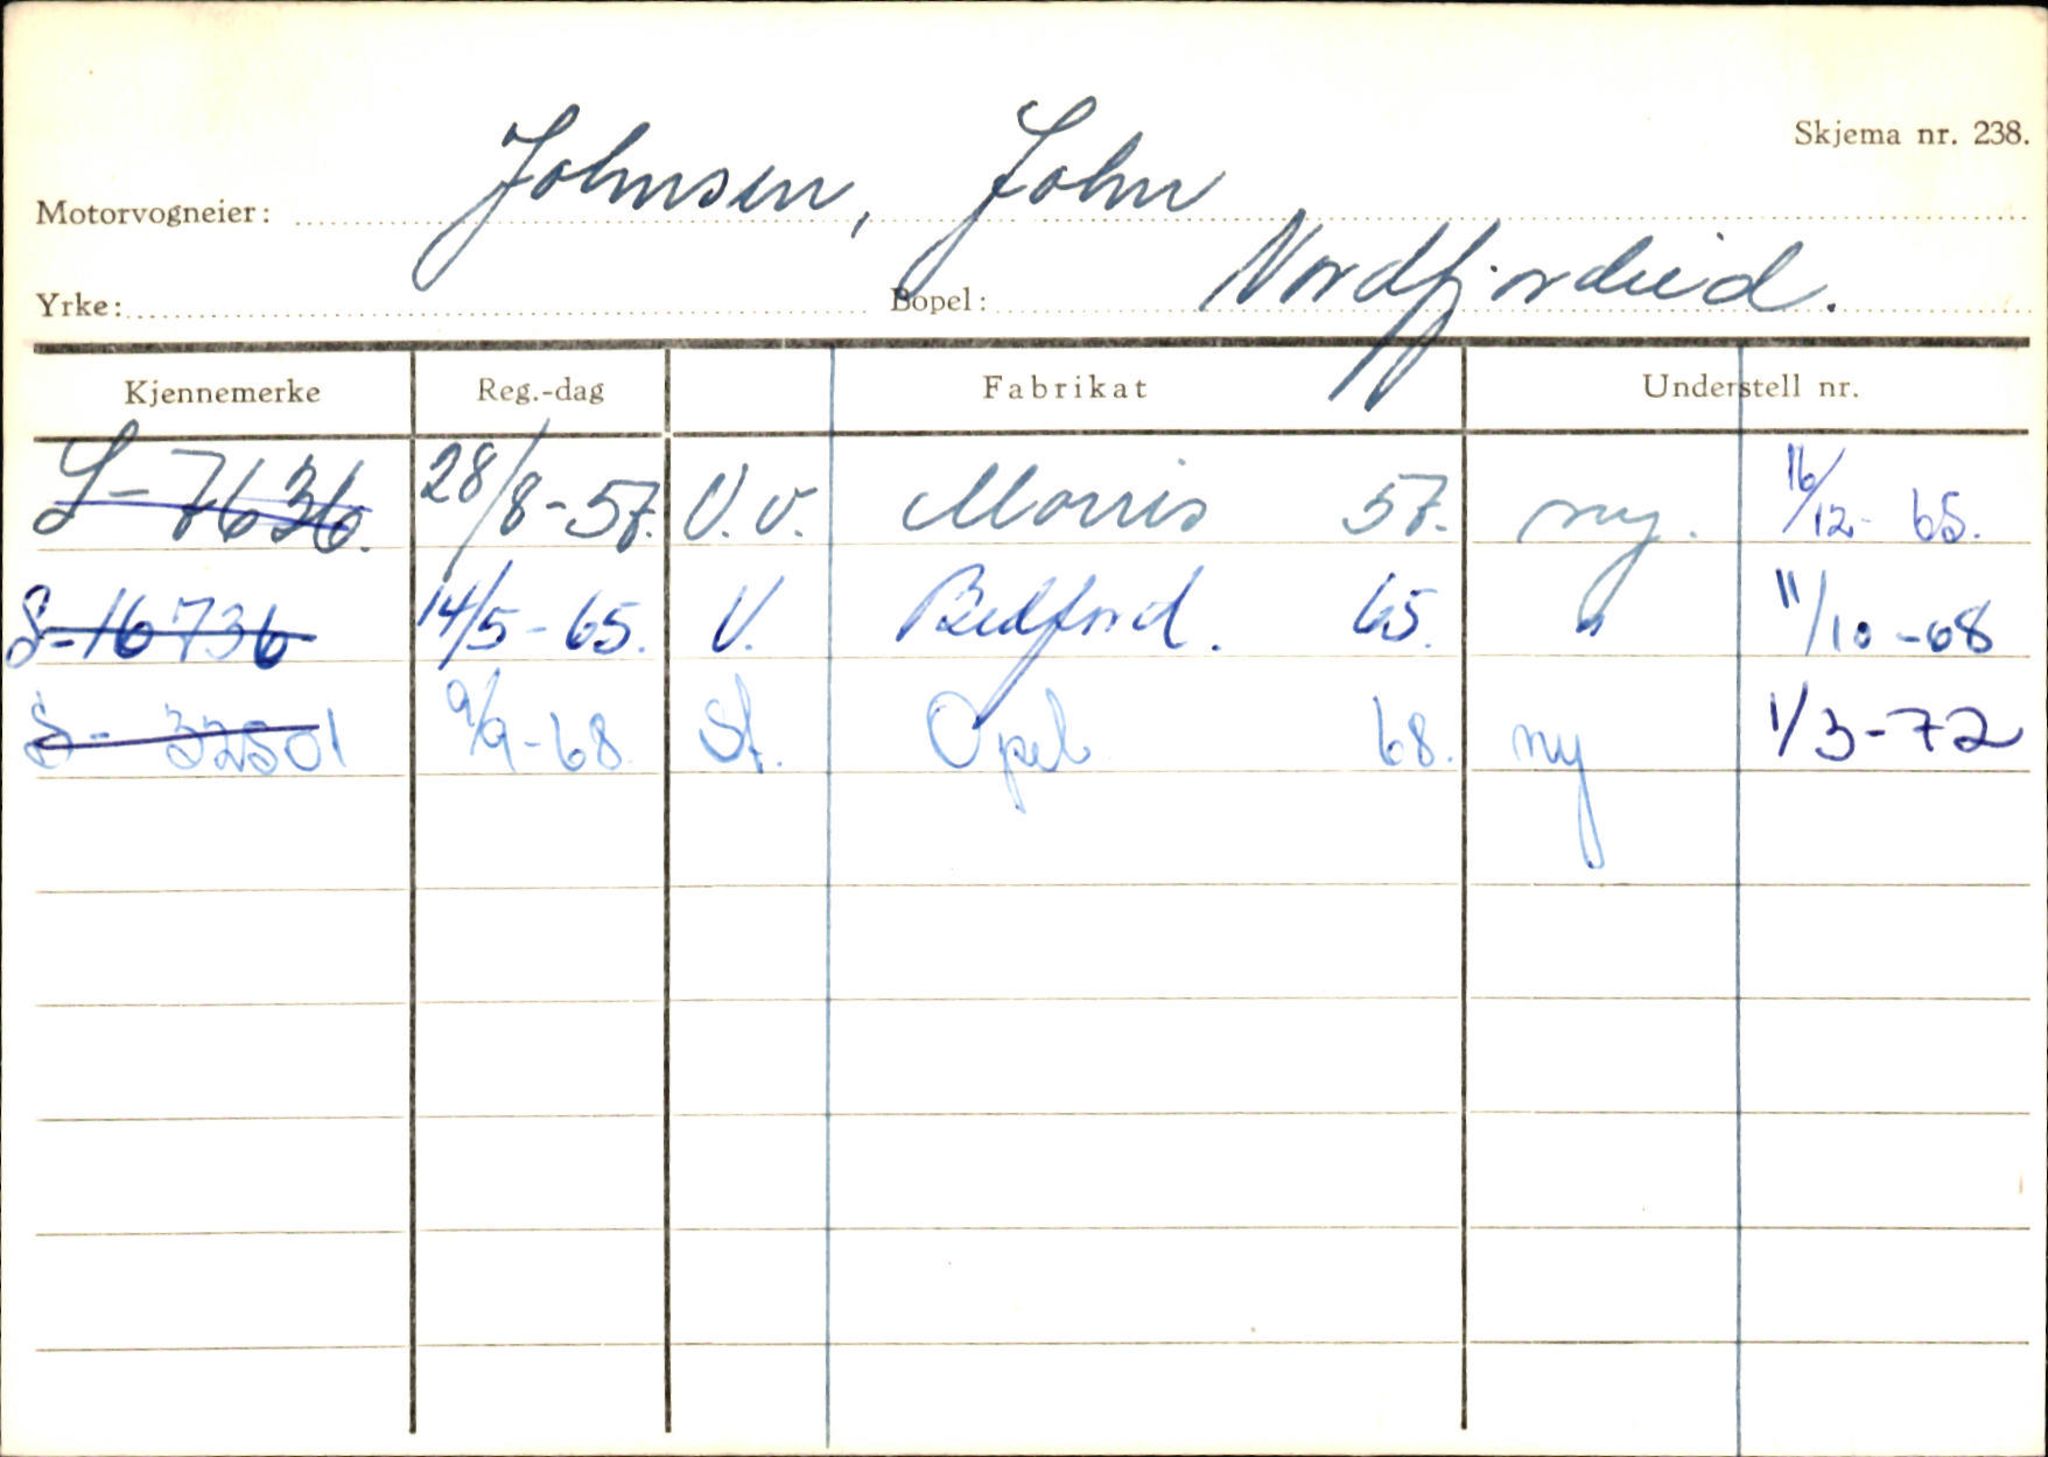 Skjema nr. 238.
Motorvogneier: Johnsen, John
Yrke: Bopel: Nordfjordeid.
Kjennemerke Reg.-dag Fabrikat Understell nr.
S-7636. 28/8-57. V.v. Morris 57. ny. 16/12- 65.
S-16736 14/5-65. V. Bedford. 65. " 11/10-68
S- 32501 9/9-68 St. Opel 68. ny 1/3-72